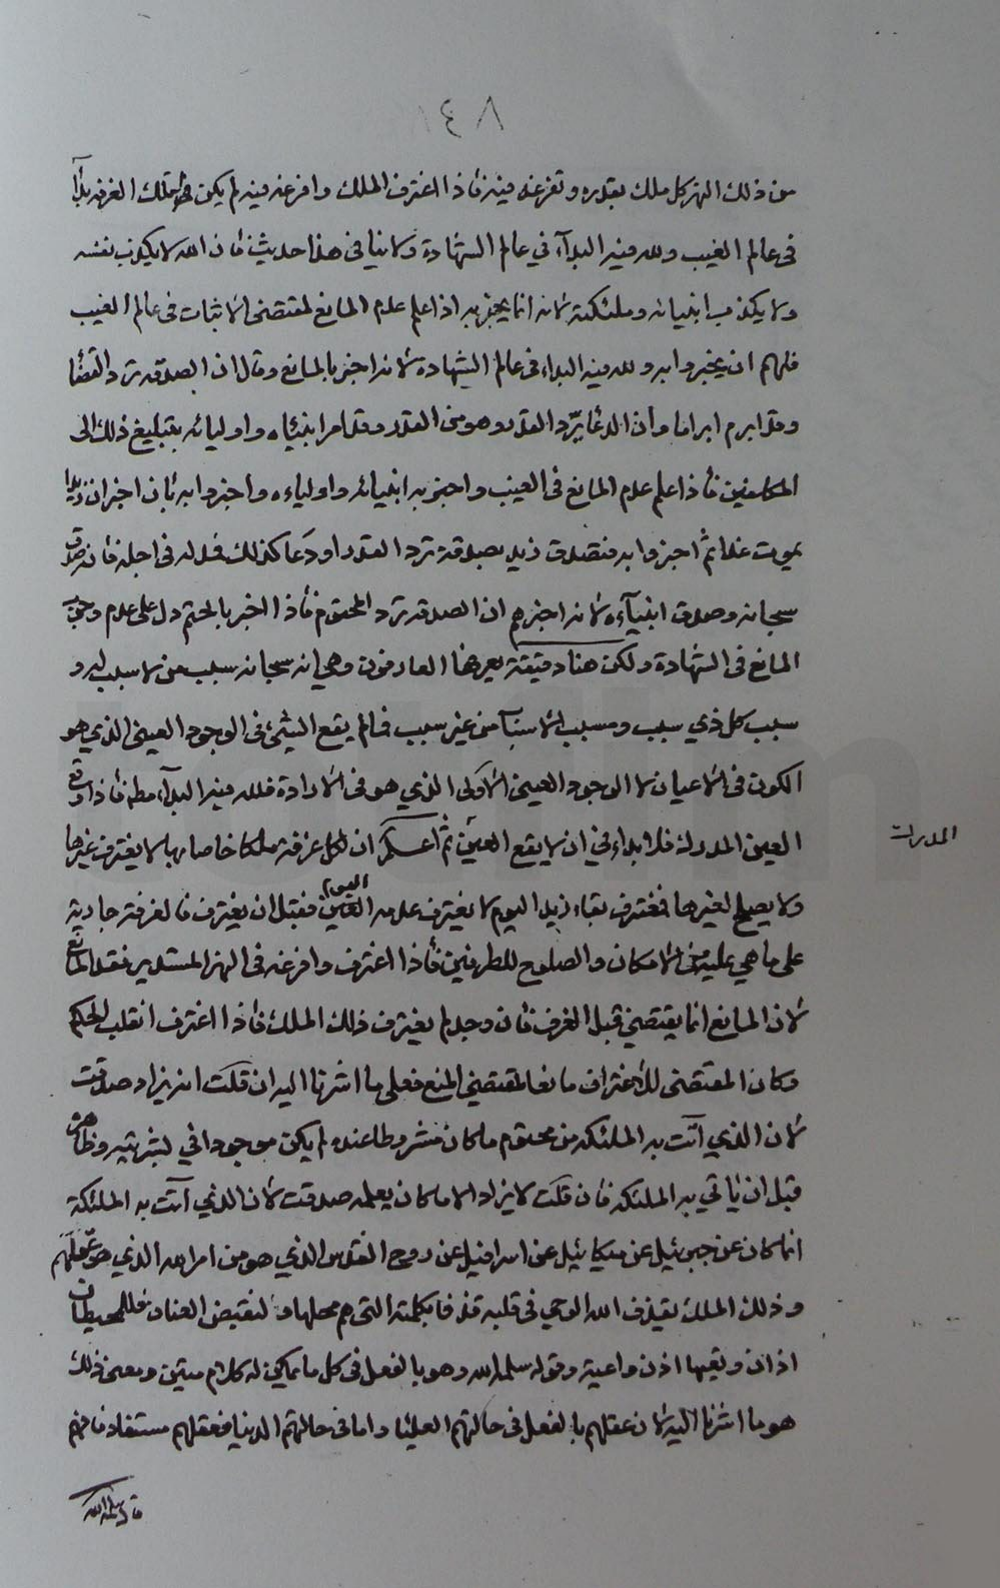 ٨٤٨
من ذلك النهر كل ملك بقدره وتفرغه فيه فاذا اغترف الملك وافرغه فيه لم يكن تلك الغرفة بدأ
فى عالم الغيب ولله فيه البدآء في عالم الشهادة ولا ينافى هذا حديث فان الله لا يكذب نفسه
ولا يكذب انبيائه وملئكته لانه انما يخبر به اذا علم عدم المانع لمقتضى الاثبات فى عالم الغيب
فلهم ان يخبروا به ولله فيه البداء فى عالم الشهادة لانه اخبر بالمانع وقال ان الصدقة ترد القضا
وقد ابرم ابراما وان الدعا يرّد القدر وهو من القدر وقد امر انبيائه واوليائه بتبليغ ذلك الى
المكلفين فأذا علم عدم المانع فى الغيب واخبر به انبيائه واوليائه واخبروا به بان اخبر ان زيدا
يموت غدا ثم اخبروا به فتصدق زيد بصدقة ترد القدر او دعا كذلك فمد له فى اجله فان صدق
سبحانه وصدق انبيآءه لانه اخبرهم ان الصدقة ترد المحتوم فأذا اخبر بالحتم دل على عدم وجود
المانع فى الشهادة ولكن هنا دقيقة يعرفها العارفون وهي انه سبحانه سبب من لا سبب له و
سبب كل ذي سبب ومسبب الاسباب من غير سبب فما لم يقع الشيئ فى الوجود العينى الذي هو
الكون فى الاعيان لا الوجود العينى الاولى الذي هو فى الارادة فلله فيه البدآء مطلقا فأذا وقع
العين المدرك فلا بداء فى ان لا يقع العين ثم اعلم ان لكل غرفة ملكا خاصا بها لا يغترف غيرها
المدركة
ولا يصلح لغيرها فمغترف بقاء زيد اليوم لا يغترف عدمه اليوم فقبل ان يغترف فالغرفة جارية
على ما هي عليه فى الامكان والصلوح للطرفين فأذا اغترف وافرغه فى النهر المستدير فقد المانع
لان المانع انما يقتضي قبل الغرف فان وجد لم يغترف ذلك الملك فأذا اغترف انقلب الحكم
وكان المقتضى للاغتراف مانعا لمقتضي المنع فعلى ما اشرنا اليه ان قلت انه يزاد صدقت
لان الذي اتت به الملئكة من محتوم ما كان مشروطا عنده لم يكن موجودا في بشريته وظاهره
قبل ان يأتي به الملئكة فان قلت لا يزاد الا ما كان يعلمه صدقت لان الذي اتت به الملئكة
انما كان عن جبرئيل عن ميكائيل عن اسرافيل عن روح القدس الذي هو من امر الله الذي هو عقلهم
وذلك الملك يقذف الله الوحي فى قلبه قذفا بكلمته التى هم محلها
اذان وتعيها اذن واعية وقوله سلمه الله وهو بالفعل فى كل ما يمكن له كلام متين ومعنى ذلك
هو ما اشرنا اليه لان عقلهم بالفعل فى حالتهم العليا واما فى حالتهم الدنيا فعقلهم مستفاد فافهم
قال سلمه الله